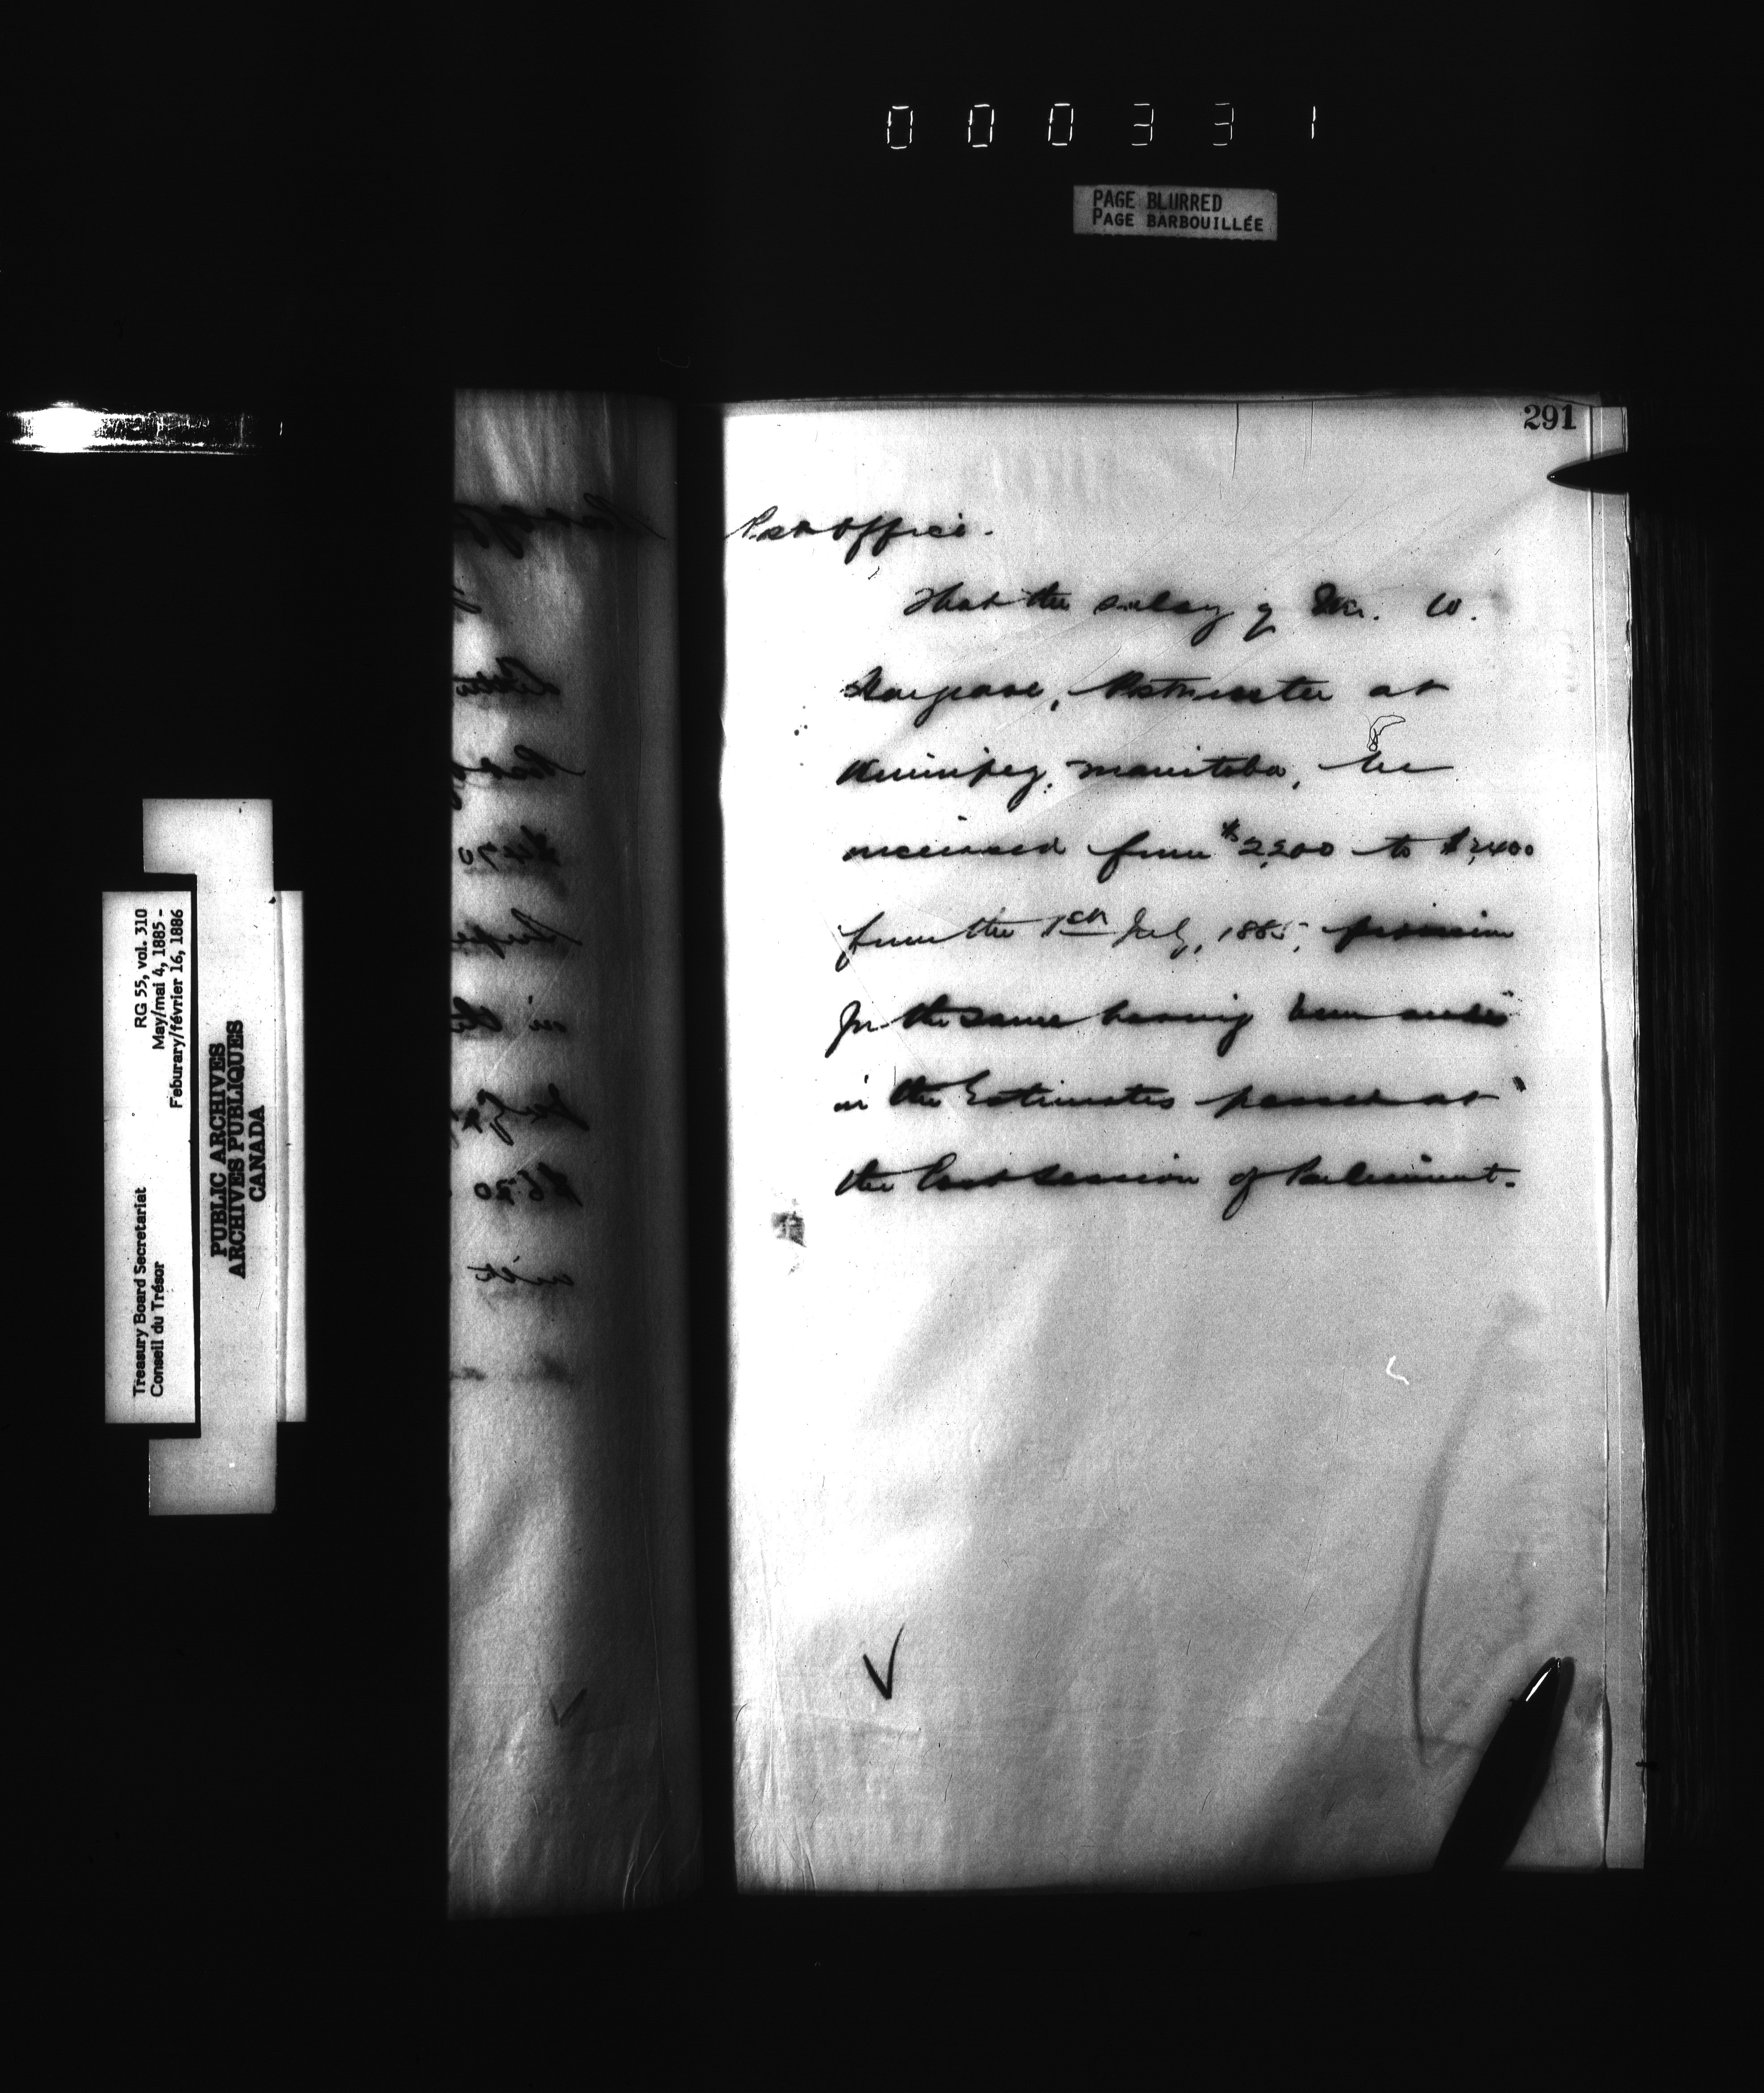 000331
PAGE BLURRED
PAGE BARBOUILLÉE
291
Post Office.
That the salary of Mr. W.
Hargrave, Postmaster at
Winnipeg, Manitoba, be
increased from $2,200 to $2,400
from the 1st July, 1885, provision
for the same having been made
in the Estimates passed at
the last session of Parliament.
$470
in the
$620
with
Treasury Board Secretariat RG 55, vol. 310
Conseil du Trésor May/mai 4, 1885 -
Feburary/février 16, 1886
PUBLIC ARCHIVES
ARCHIVES PUBLIQUES
CANADA